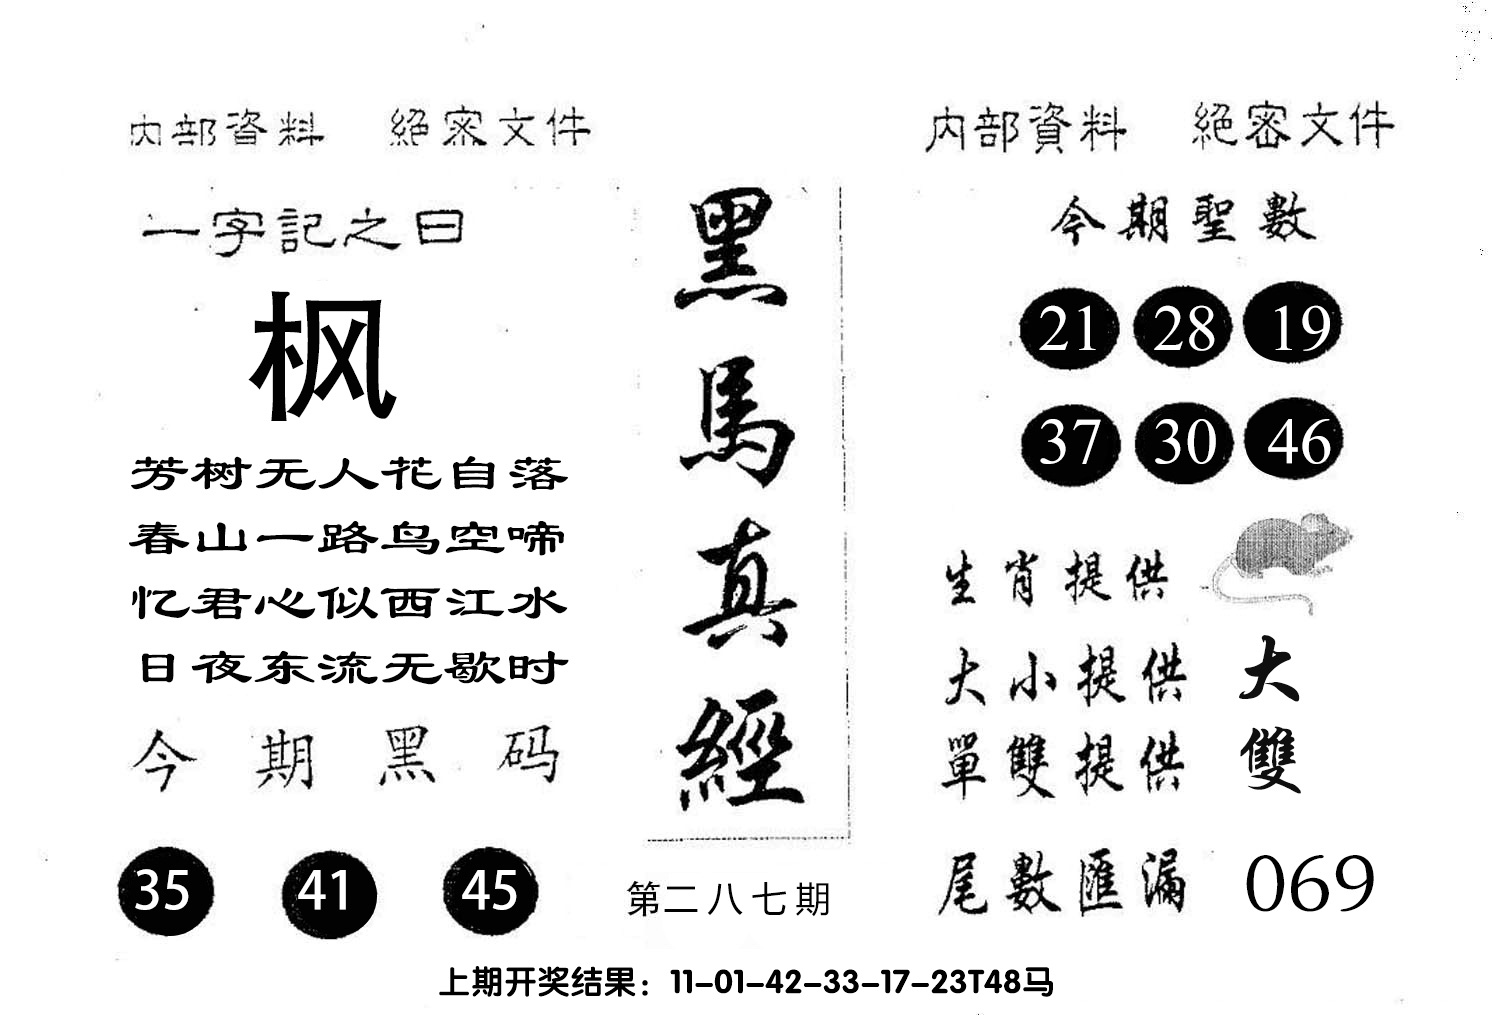 內部資料 絕密文件
一字記之曰
枫
芳树无人花自落
春山一路鸟空啼
忆君心似西江水
日夜东流无歇时
今期黑码
35 41 45
黑馬真經
第二八七期
內部資料 絕密文件
今期聖數
21 28 19
37 30 46
生肖提供
大小提供 大
單雙提供 雙
尾數匯漏 069
上期开奖结果：11-01-42-33-17-23T48马